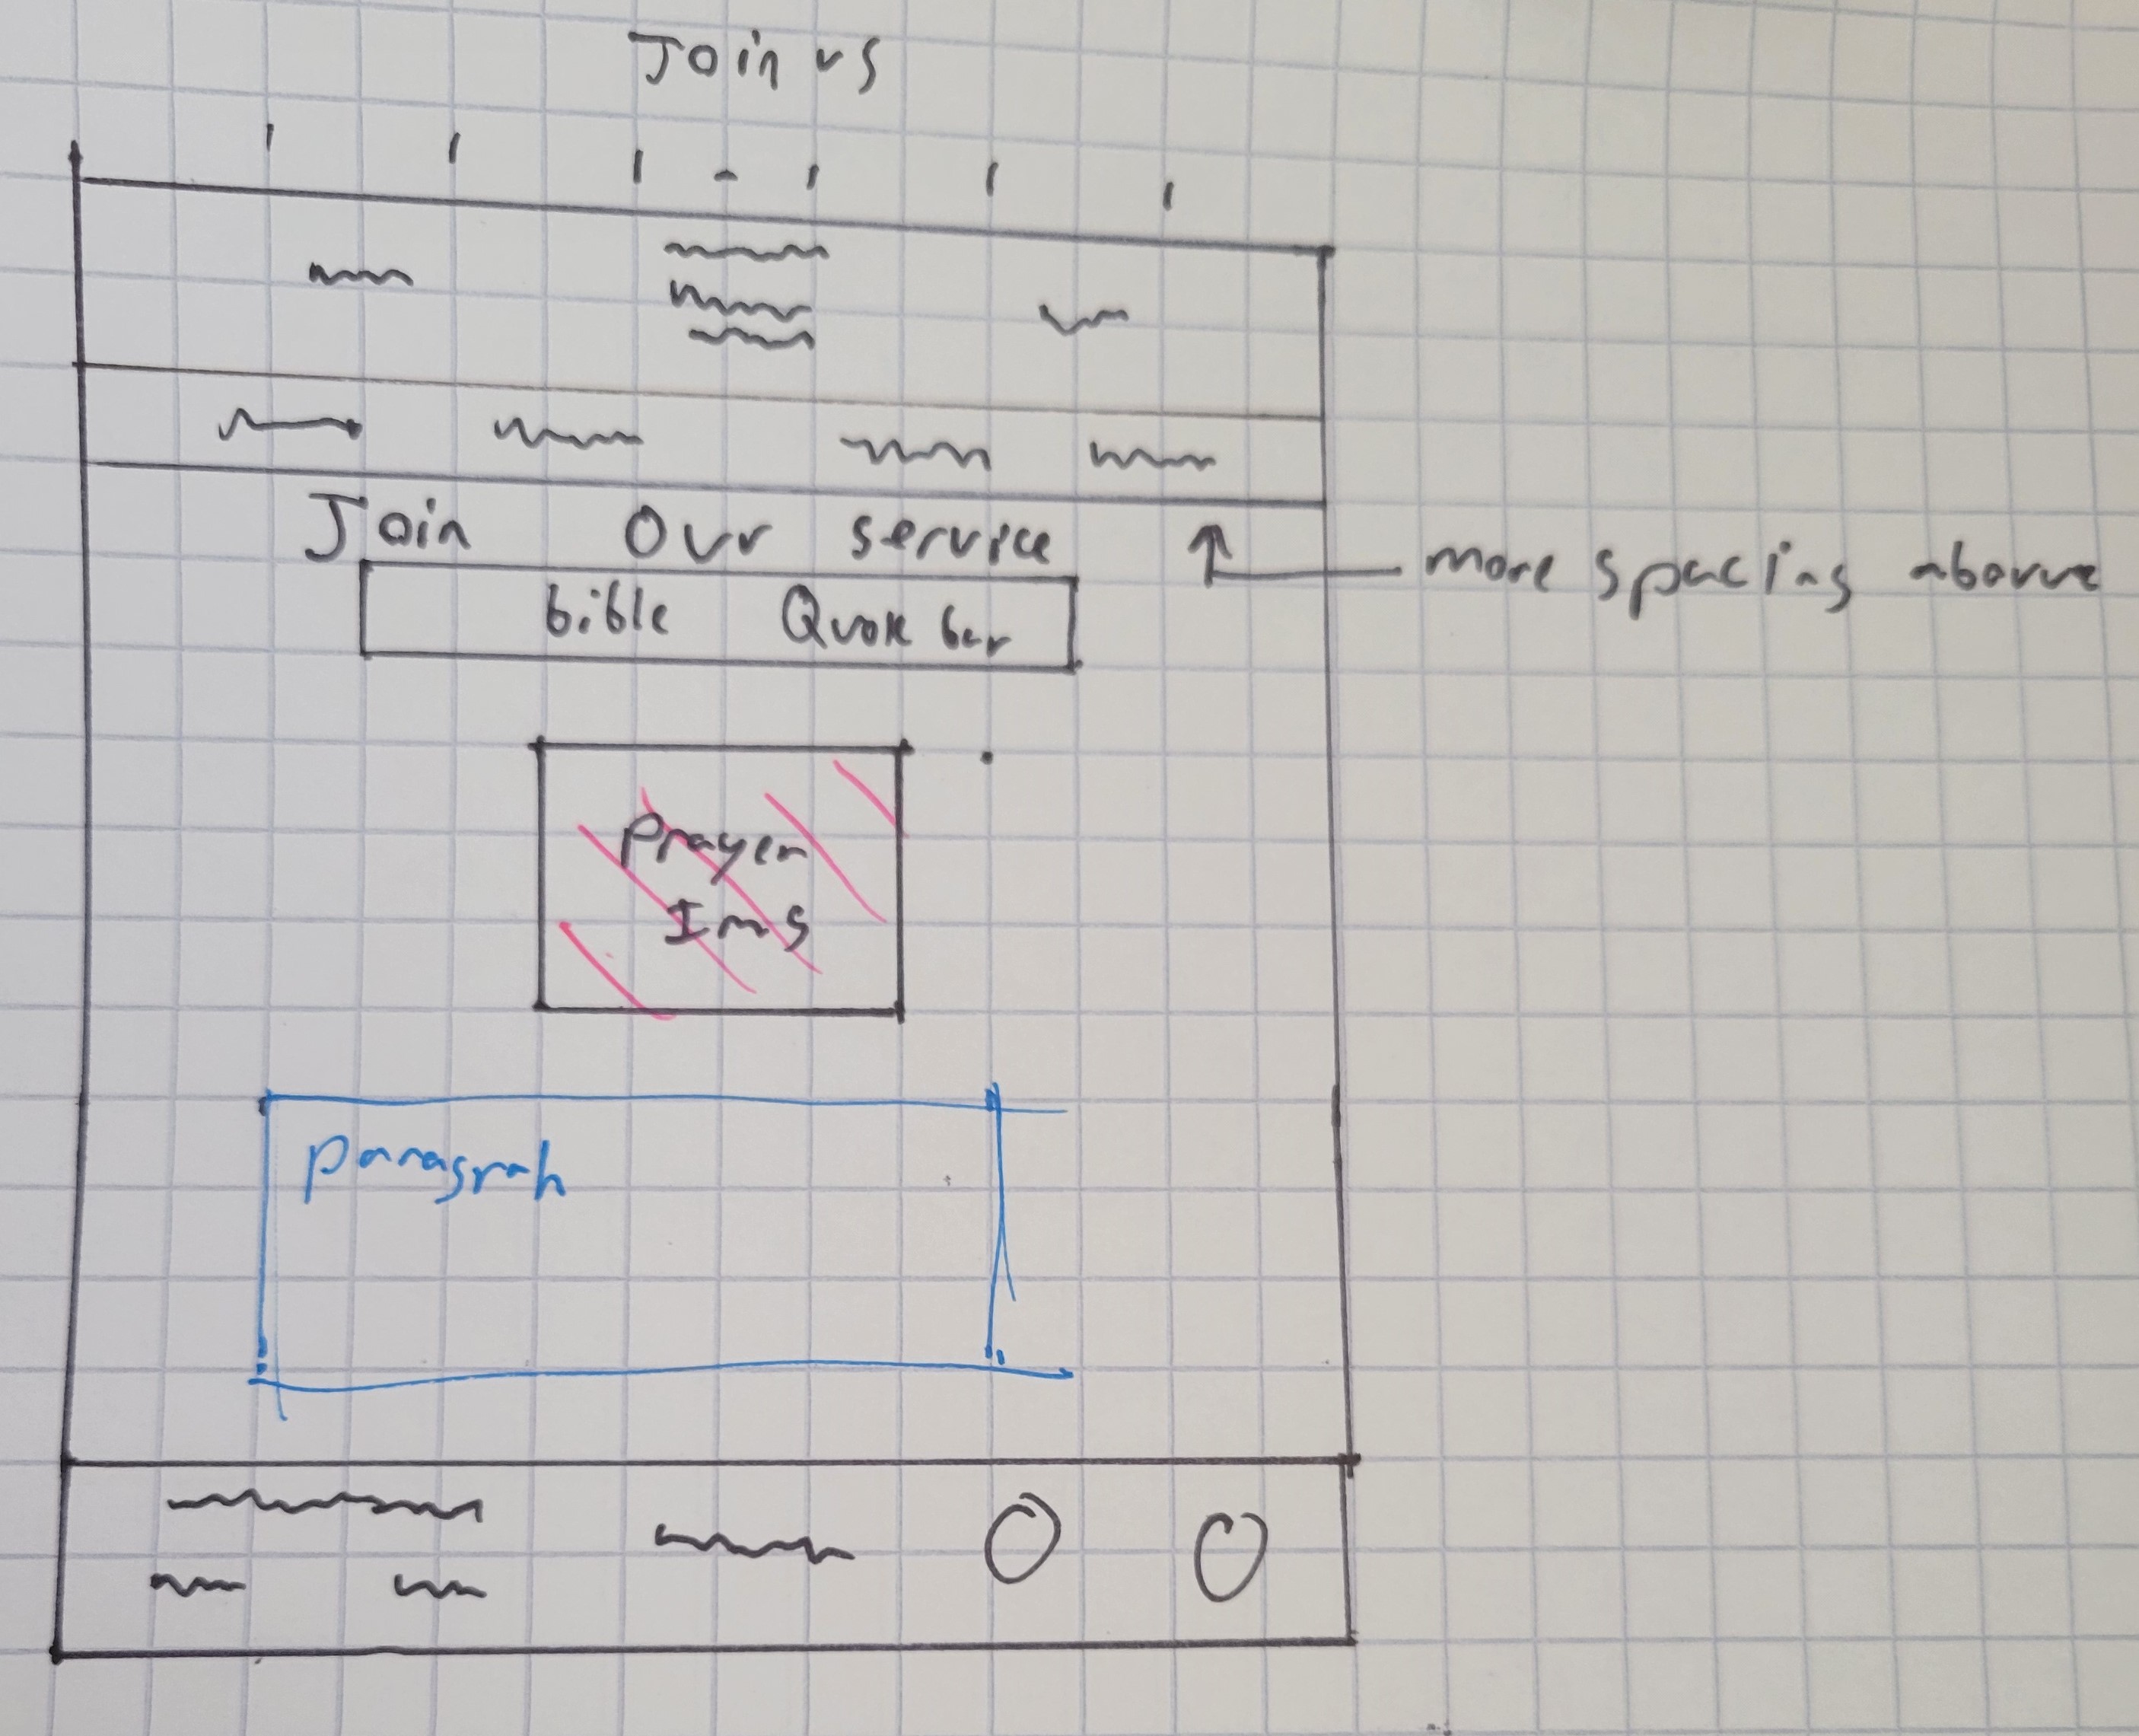 Join us
Join Our service
more spacing above
bible Quote bar
Prayer
Img
paragrah